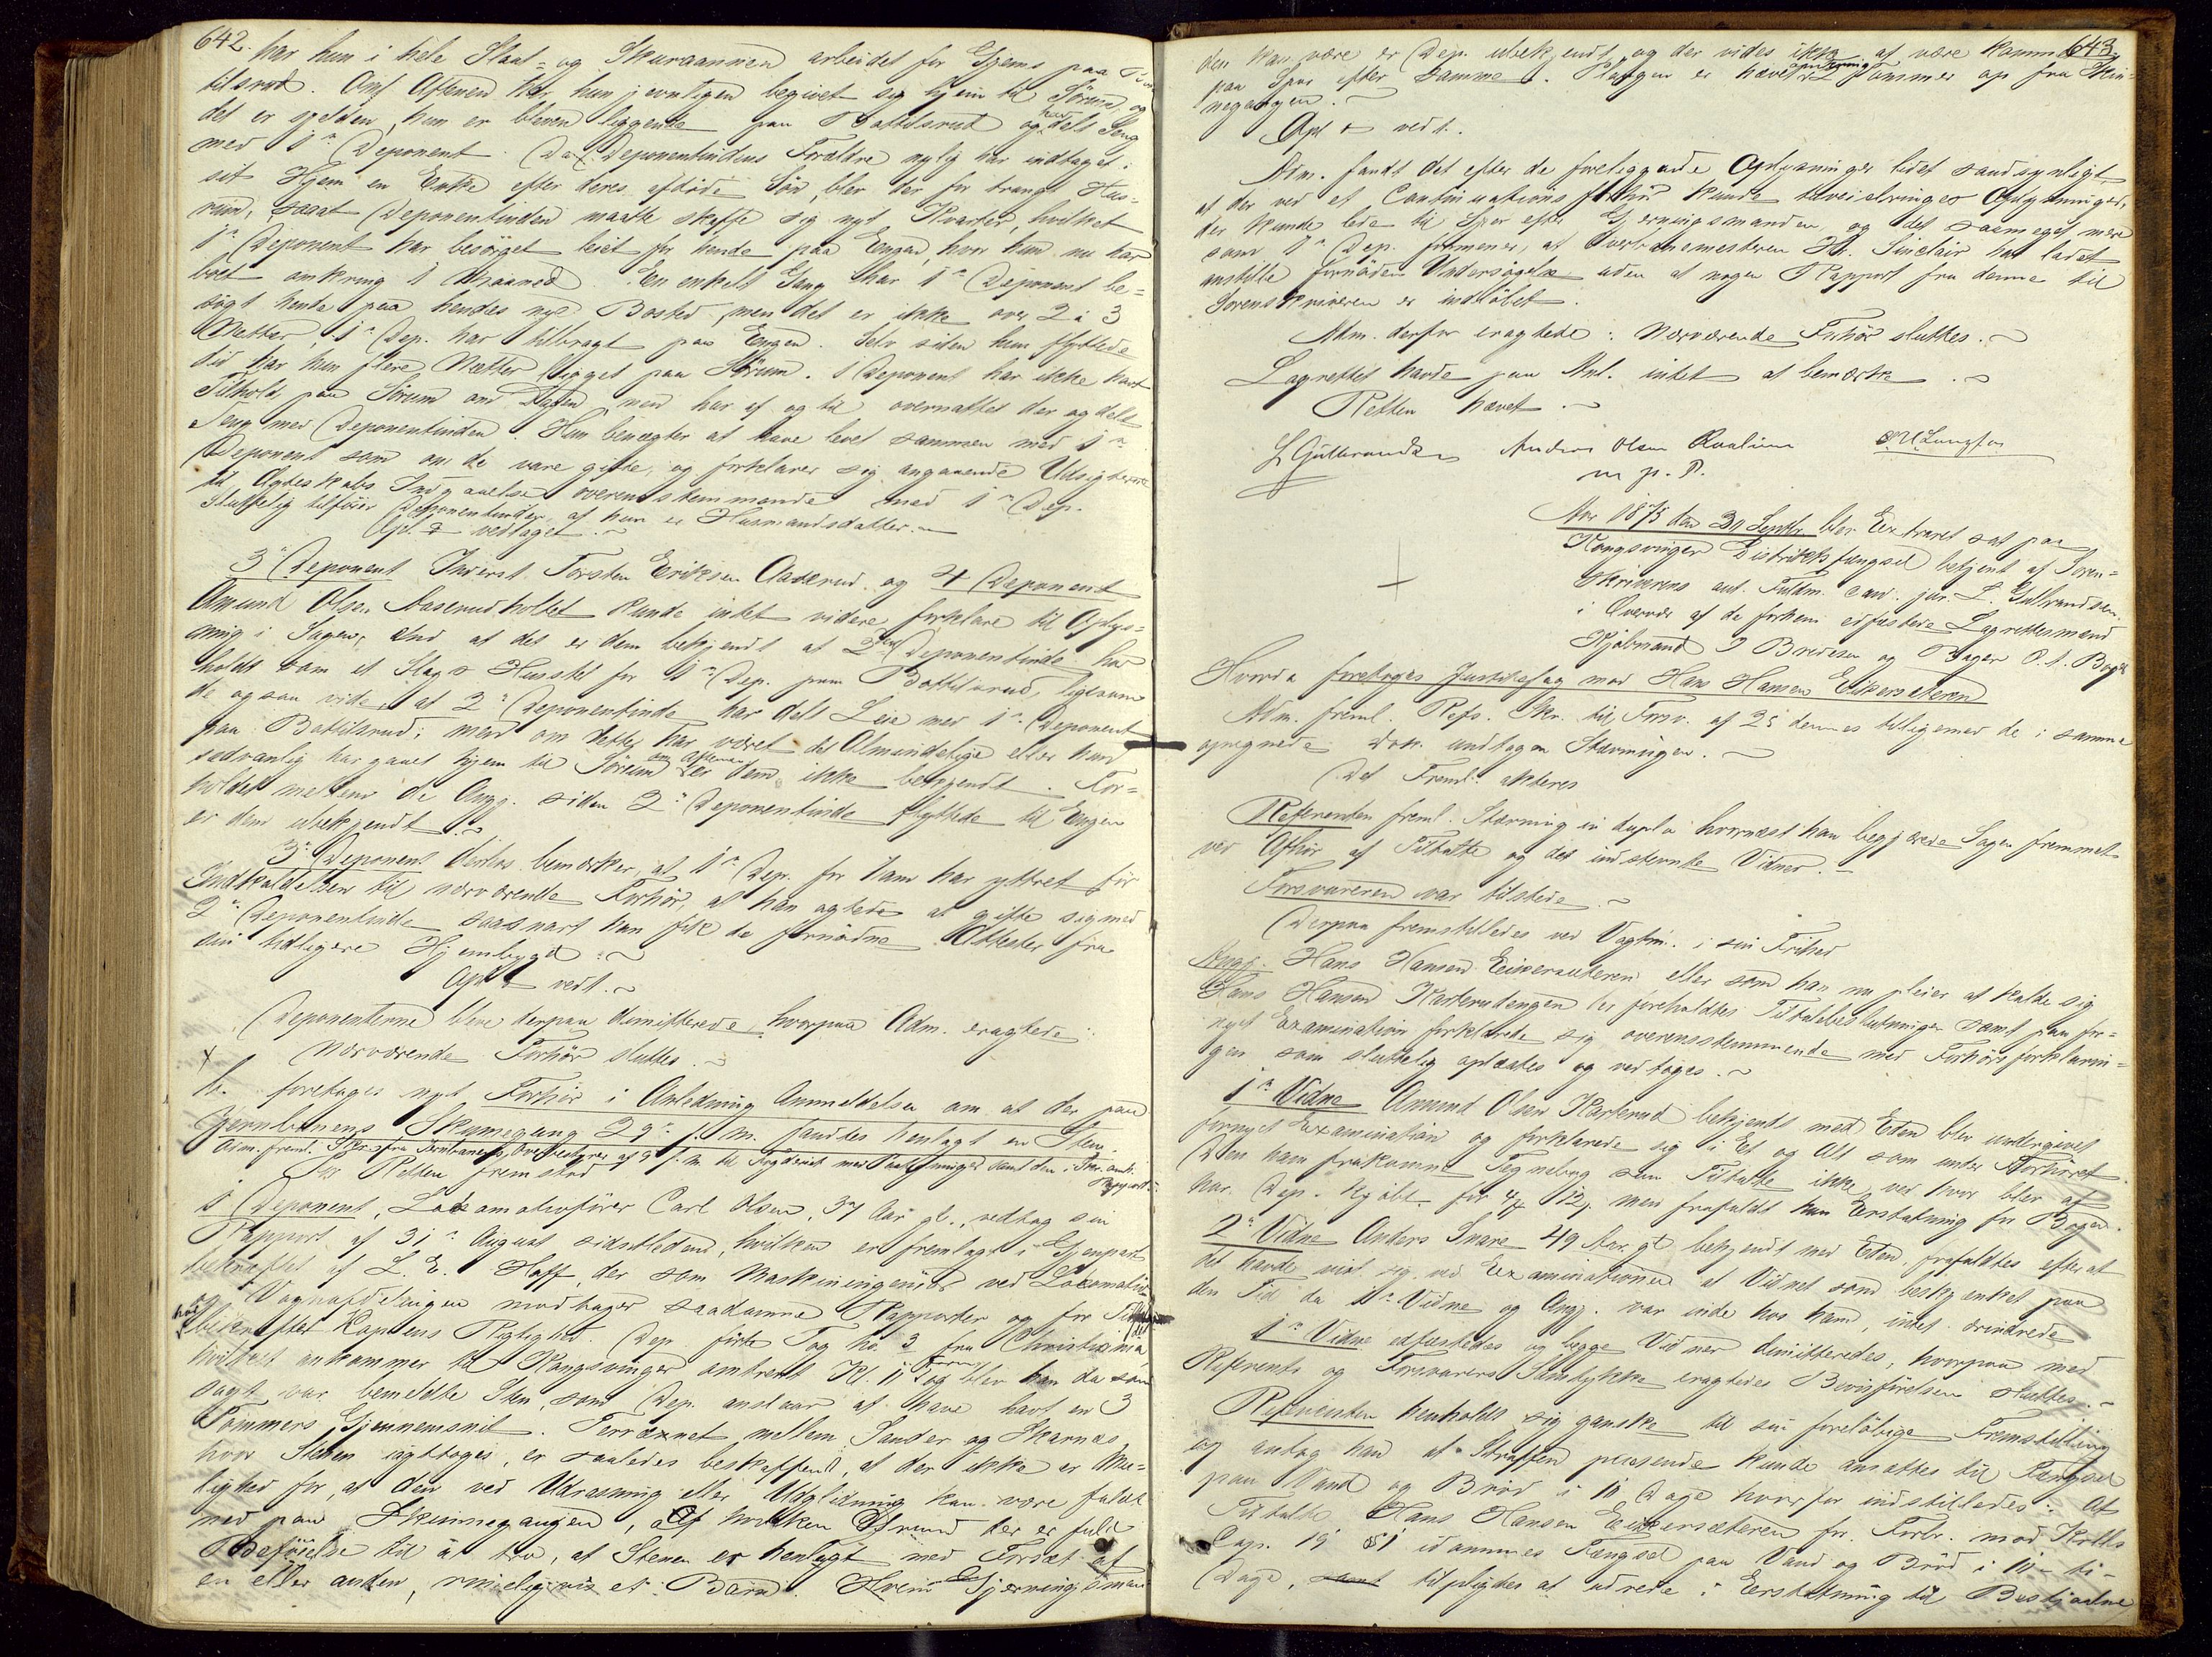 642.
har hun i hele Slaat- og Skuraannen arbeidet for Hjems paa
tilsrud. Om Aftenen har hun jevnligen begivet sig hjem til Sørum, og
det er sjelden, hun er bleven liggende paa Bottilsrud og har delt Seng
med 1ste Deponent. Da Deponentindens Forældre nylig har indtaget i
sit Hjem en Enke efter deres afdøde Søn, blev der for trangt Hus-
rum, saaat Deponentinden maatte skaffe sig nyt Kvarter, hvilket
1ste Deponent har besørget leiet for hende paa Engen, hvor hun nu har
boet omkring 1 Maaned. En enkelt Gang har 1ste Deponent be-
søgt hende paa hendes nye Bosted, men det er ikke over 2 à 3
Nætter, 1ste Dep. har tilbragt paa Engen. Selv siden hun flyttede
did har hun flere Nætter ligget paa Sørum. 1 Deponent har ikke havt
Tilhold paa Sørum om Dagen men har af og til overnattet der og delt
Seng med Deponentinden. Hun benægter at have levet sammen med 1ste
Deponent som om de vare gifte, og forklarer sig angaaende Udsigterne
til Ægteskabs Indgaaelse overensstemmende med 1ste Dep.
Sluttelig tilføier Deponentinden at hun er Husmandsdatter.
Opl. & vedtaget.
3 Deponent Inderst Torsten Eriksen Aaserud og 4 Deponent
Amund Olsen Aaserudholtet kunde intet videre forklare til Oplys-
ning i Sagen, end at det er dem bekjendt at 2den Deponentinde har
holdt som et Slags Husstel for 1ste Dep. paa Bottilsrud, ligesom
de ogsaa vide, at 2 Deponentinde har delt Leie med 1ste Deponent
paa Bottilsrud; men om dette har været det Almindelige eller hun
sædvanlig har gaaet hjem til Sørum om Aftenen er dem ikke bekjendt. For-
holdet mellem de Angj. siden 2 Deponentinde flyttede til Engen
er dem ubekjendt.
3 Deponent derhos bemærker, at 1ste Dep. for ham har yttret før
Indkaldelsen til nærværende Forhør, at han agtede at gifte sig med
2 Deponentinde saasnart han fik de fornødne Attester fra
sin tidligere Hjembygd.
Opl. & vedt.
Deponenterne bleve derpaa dimitterede, hvorpaa Adm. eragtede:
Nærværende Forhør sluttes.
h. foretages nyt Forhør i Anledning Anmeldelse om at der paa
Jernbanens Skinnegang 29de f. M. fandtes henlagt en Sten.
Adm. freml. Skr. fra Jernbanens Overbestyrer af 9 f. M. til Fogderiet med Paategninger samt den i Skr. omh. Rapport.
For Retten fremstod
1 Deponent, Lokomotivfører Carl Olsen, 37 Aar gl., vedtog sin
Rapport af 31te August sidstleden, hvilken er fremlagt i Gjenpart
bekræftet af L. E. Hoff, der som Maskiningeniør ved Lokomotiv
og Vognafdelingen modtager saadanne Rapporter og for
bekræftet Kopiens Rigtighed. Dep. førte Tog No. 3 fra Christiania,
hvilket ankommer til Kongsvinger omtrent Kl. 11 Form. og blev han da som
sagt var bemeldte Sten, som Dep. anslaar at have havt en 3
Tommers Gjennemsnit. Terrænet mellem Sander og Skarnes
hvor Stenen iagttoges, er saaledes beskaffent, at der ikke er Mu-
lighed for, at den ved Udrasning eller Udglidning kan være faldt
ned paa Skinnegangen, af hvilken Grund der er fuld
Beføielse til at tro, at Stenen er henlagt med Forsæt af
en eller anden, rimeligvis et Barn. Hvem Gjerningsman-
643.
den kan være er Dep. ubekjendt og der vides ikke at være kommet
paa Spor efter samme. Plangen er hævet omkring Tommer op fra Skin-
negangen.
Opl & vedt.
Adm. fandt det efter de foreliggende Oplysninger lidet sandsynligt
at der ved et Continuationsforhør kunde tilveiebringes Oplysninger,
der kunde lede til Spor efter Gjerningsmanden og det saameget mere
som 1ste Dep. formener, at Overbanemesteren Hr. Sinclair har ladet
anstille fornøden Undersøgelse uden at nogen Rapport fra denne til
Sorenskriveren er indløbet.
Adm. derfor eragtede: Nærværende Forhør sluttes.
Lagrettet havde paa Anl. intet at bemærke.
Retten hævet.
L Gulbrandsen Anders Olsen
m. p. P.
Aar 1875 den 30 Septbr. blev Extraret sat paa
Kongsvinger Distriktsfængsel betjent af Soren-
skriverens aut. Fuldm. cand. jur. L. Gulbrandsen
i Overvær af de forhen edfæstede Lagrettesmænd
Kjøbmand J Bredesen og Bager O. A.
Hvorda foretoges Justitssag mod Hans Hansen Eikersæteren
Adm. freml. Refs. Skr. til Forsv. af 25 dennes tilligemed de i samme
opregnede Dok. undtagen Stævningen.
Det Freml. akteres
Referenten freml. Stævning in duplo hvornæst han begjærede Sagen fremmet
ved Afhør af Tiltalte og det indstevnte Vidner.
Forsvareren var tilstede.
Derpaa fremstilledes ved Vagtm. i sin Frihed
Angj. Hans Hansen Eikersæteren eller som han nu pleier at kalde sig
Hans Hansen Karterudengen der foreholdtes Tiltalebeslutningen samt paa for-
nyet Examination forklarede sig overensstemmende med Forhørsforklarin-
gen som sluttelig oplæstes og vedtoges.
1ste Vidne Amund Olsen Karterud bekjendt med Eden blev undergivet
fornyet Examination og forklarede sig i Et og Alt som under Forhøret.
Den ham frakomne Tegnebog som Tiltalte ikke ved hvor blev af
har Dep. kjøbt for 4 12 men frafaldt han Erstatning for Bogen.
2 Vidne Anders Snare 49 Aar gl. bekjendt med Eden, frafaldtes efterat
det havde vist sig ved Examinationen at Vidnet som beskjenket paa
den Tid da 1ste Vidne og Angj. var inde hos ham, intet erindrede.
1ste Vidne edfæstedes og begge Vidner dimitteredes, hvorpaa med
Referents og Forsvarers Samtykke eragtedes Bevisførelsen sluttet.
Referenten henholdt sig ganske til sin foreløbige Fremstilling
og antog han at Straffen passende kunde ansættes til Fængsel
paa Vand og Brød i 10 Dage hvorfor indstilledes: At
Tiltalte Hans Hansen Eikersæteren for Forbr. mod Krlls
Cap. 19 § 1 idømmes Fængsel paa Vand og Brød i 10 - ti -
Dage, samt tilpligtes at udrede i Erstatning til Bestjaalne